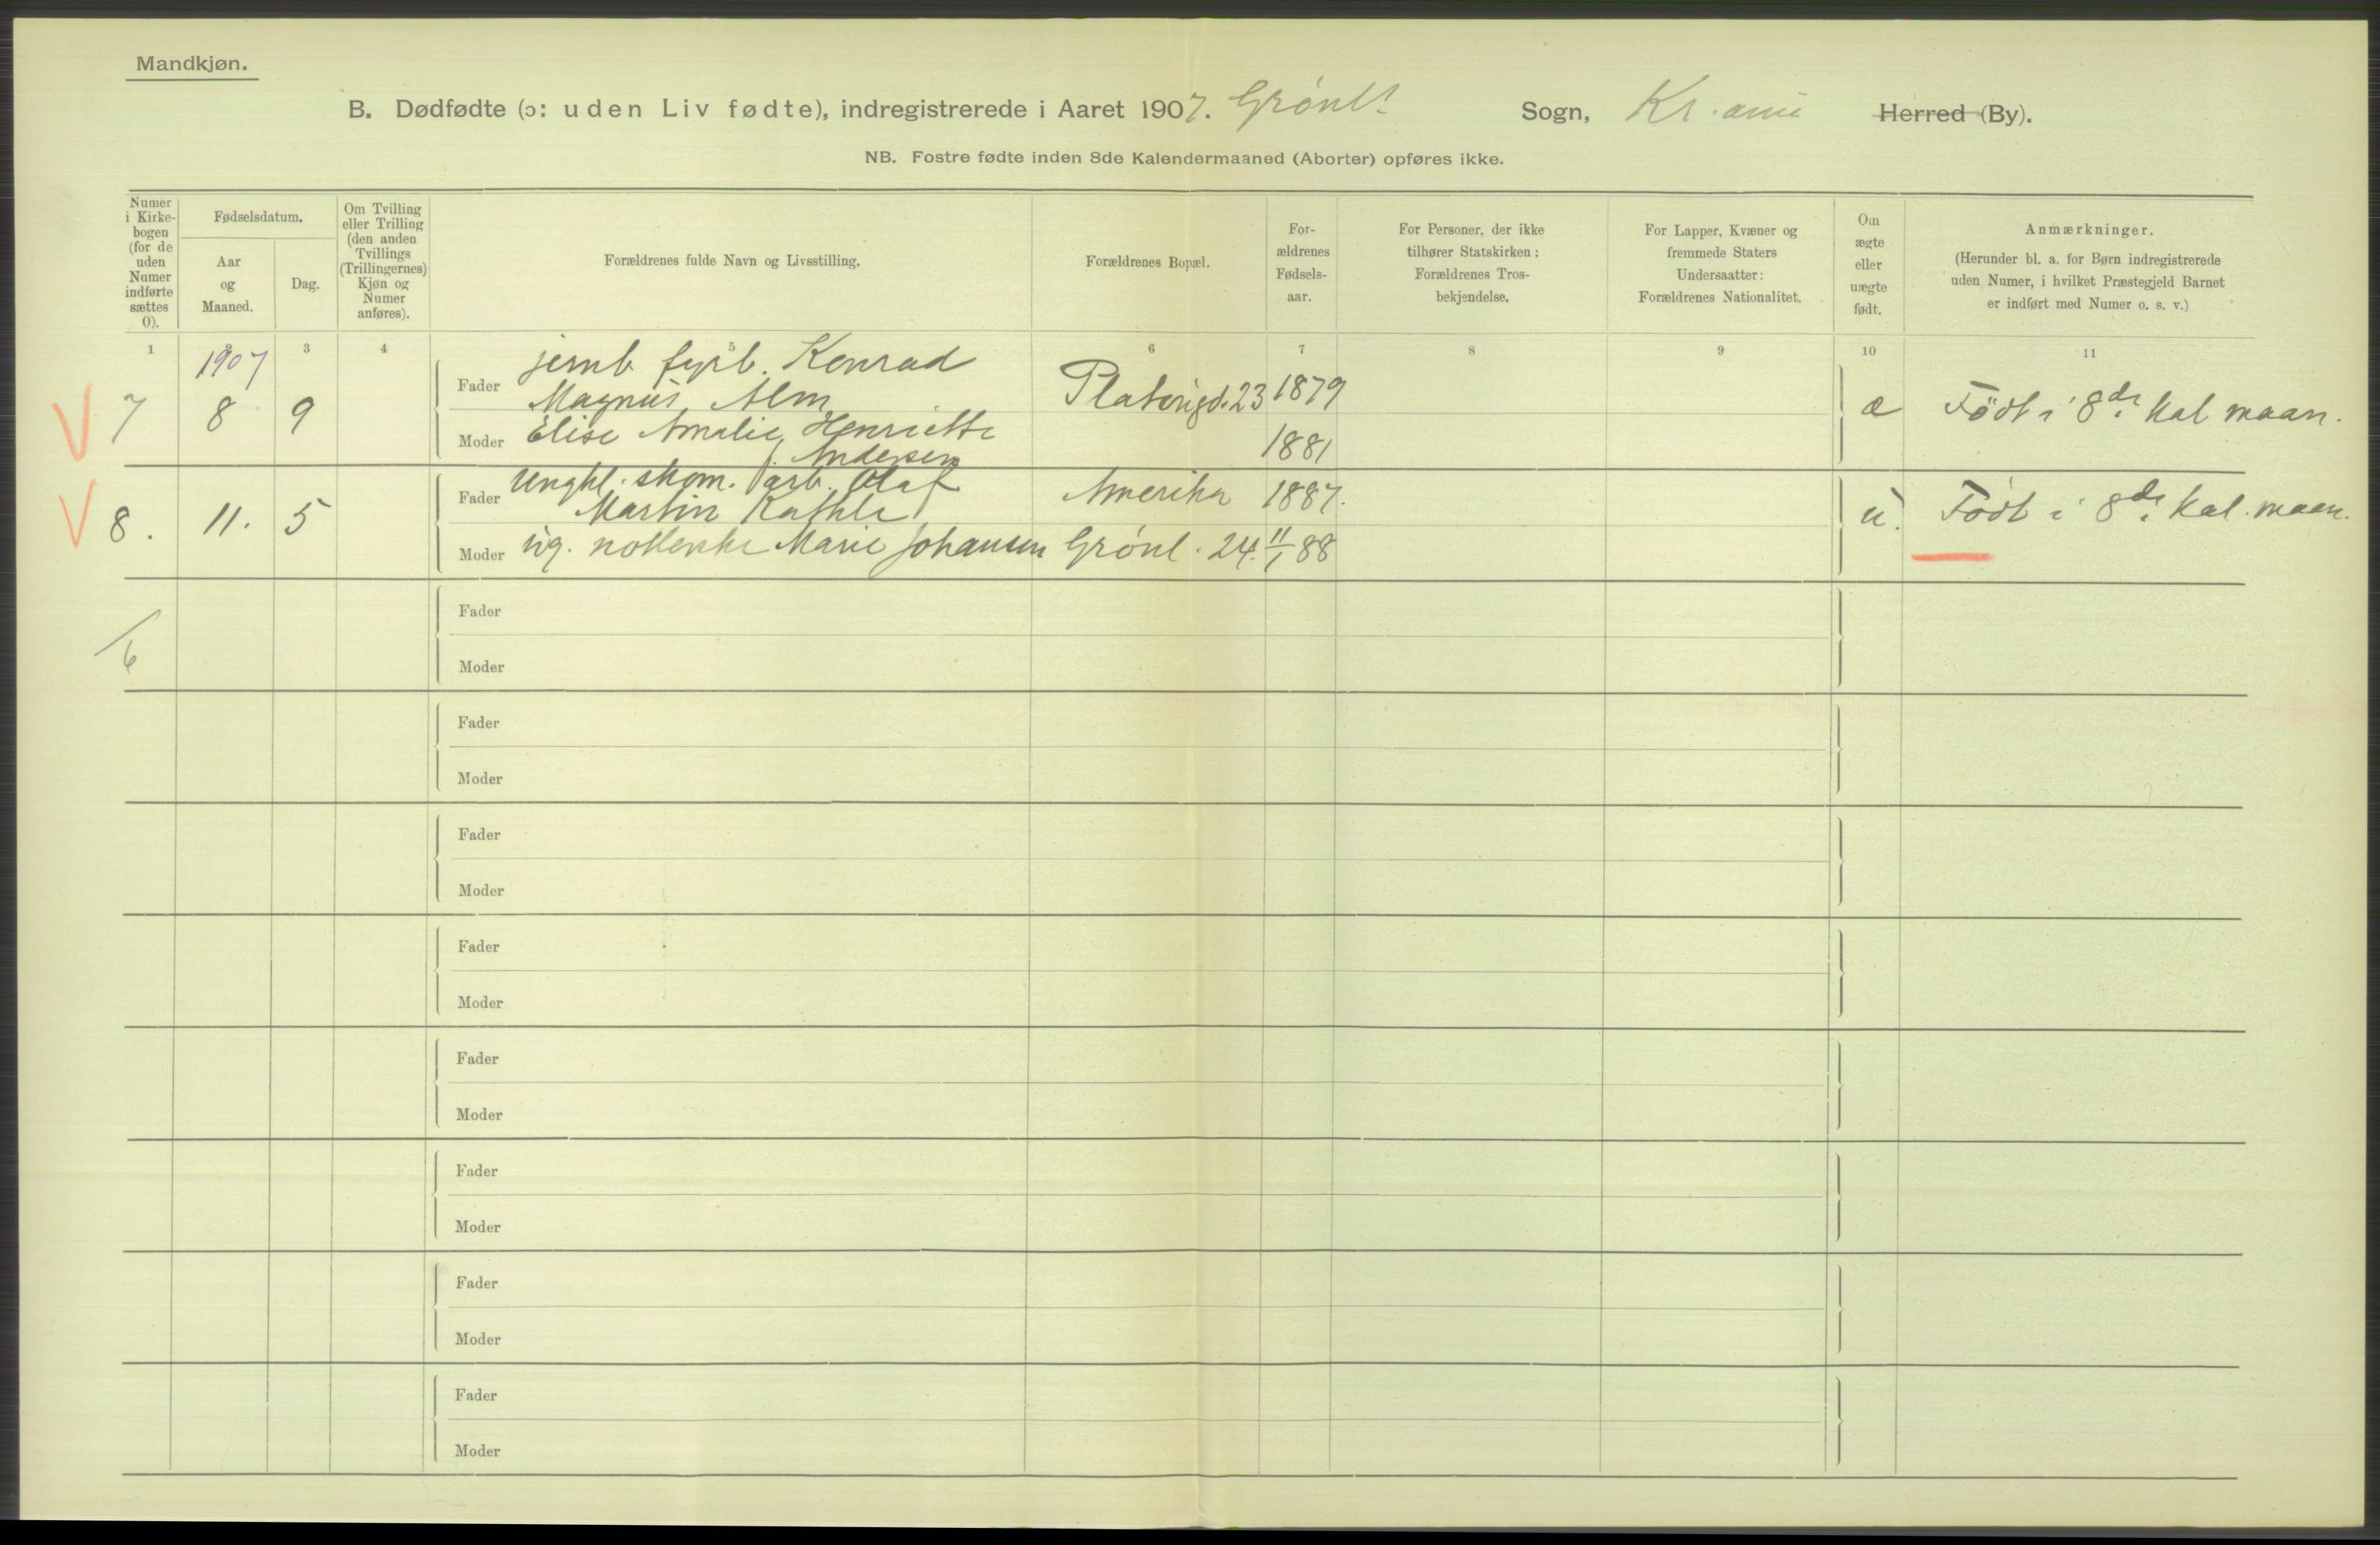 Mandkjøn.
B. Dødfødte (ɔ: uden Liv fødte), indregistrerede i Aaret 1907. Grønl. Sogn, Kr.ania Herred (By).
NB. Fostre fødte inden 8de Kalendermaaned (Aborter) opføres ikke.
Numer i Kirkebogen (for de uden Numer indførte sættes 0).
Fødselsdatum.
Aar og Maaned.
Dag.
Om Tvilling eller Trilling (den anden Tvillings (Trillingernes) Kjøn og Numer anføres).
Forældrenes fulde Navn og Livsstilling.
Forældrenes Bopæl.
Forældrenes Fødselsaar.
For Personer, der ikke tilhører Statskirken: Forældrenes Trosbekjendelse.
For Lapper, Kvæner og fremmede Staters Undersaatter: Forældrenes Nationalitet.
Om ægte eller uægte født.
Anmærkninger.
(Herunder bl. a. for Børn indregistrerede uden Numer, i hvilket Præstegjeld Barnet er indført med Numer o. s. v.)
1 2 3 4 5 6 7 8 9 10 11
1907
7 8 9 Fader jernb. fyrb. Konrad Magnus Alm Platousgd. 23 1879 æ Født i 8de Kal maan.
Moder Elise Amalie Henriette f. Andersen 1881
8. 11. 5 Fader Ungkl. skom. arb. Olaf Martin Amerika 1887. u. Født i 8de Kal. maan.
Moder Ug. Marie Johansen Grønl. 24. 11/1 88
Fader
/6
Moder
Fader
Moder
Fader
Moder
Fader
Moder
Fader
Moder
Fader
Moder
Fader
Moder
Fader
Moder